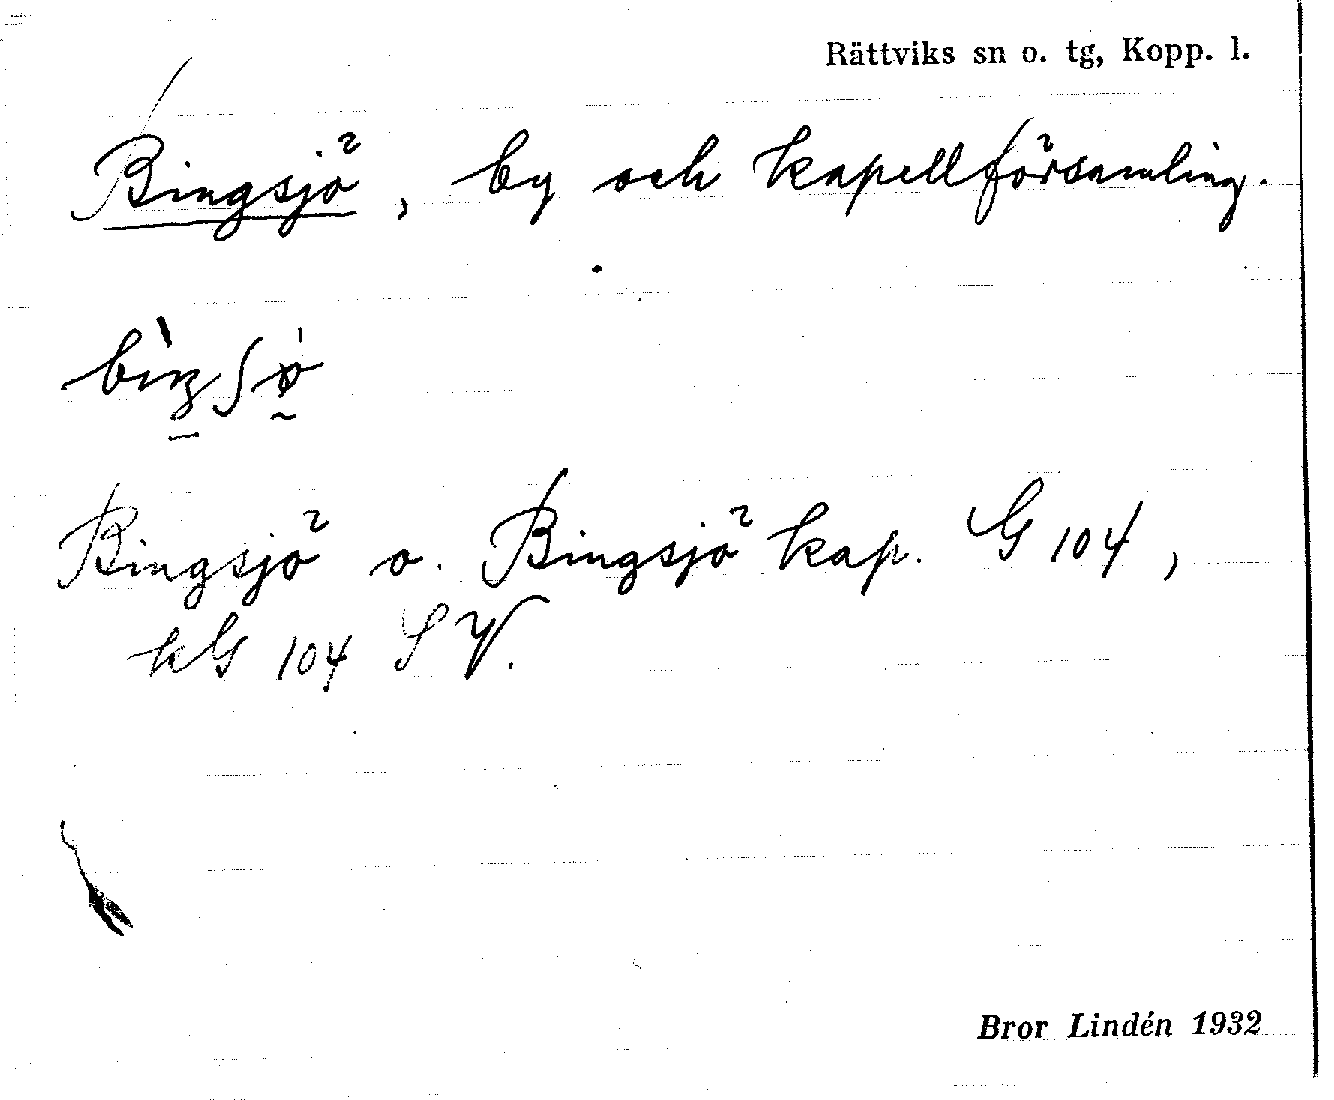 Rättviks sn o. tg, Kopp. l.
Bingsjö, by och kapellförsamling.
Bingsjö o. Bingsjö kap. G 104,
kG 104 SV.
Bror Lindén 1932